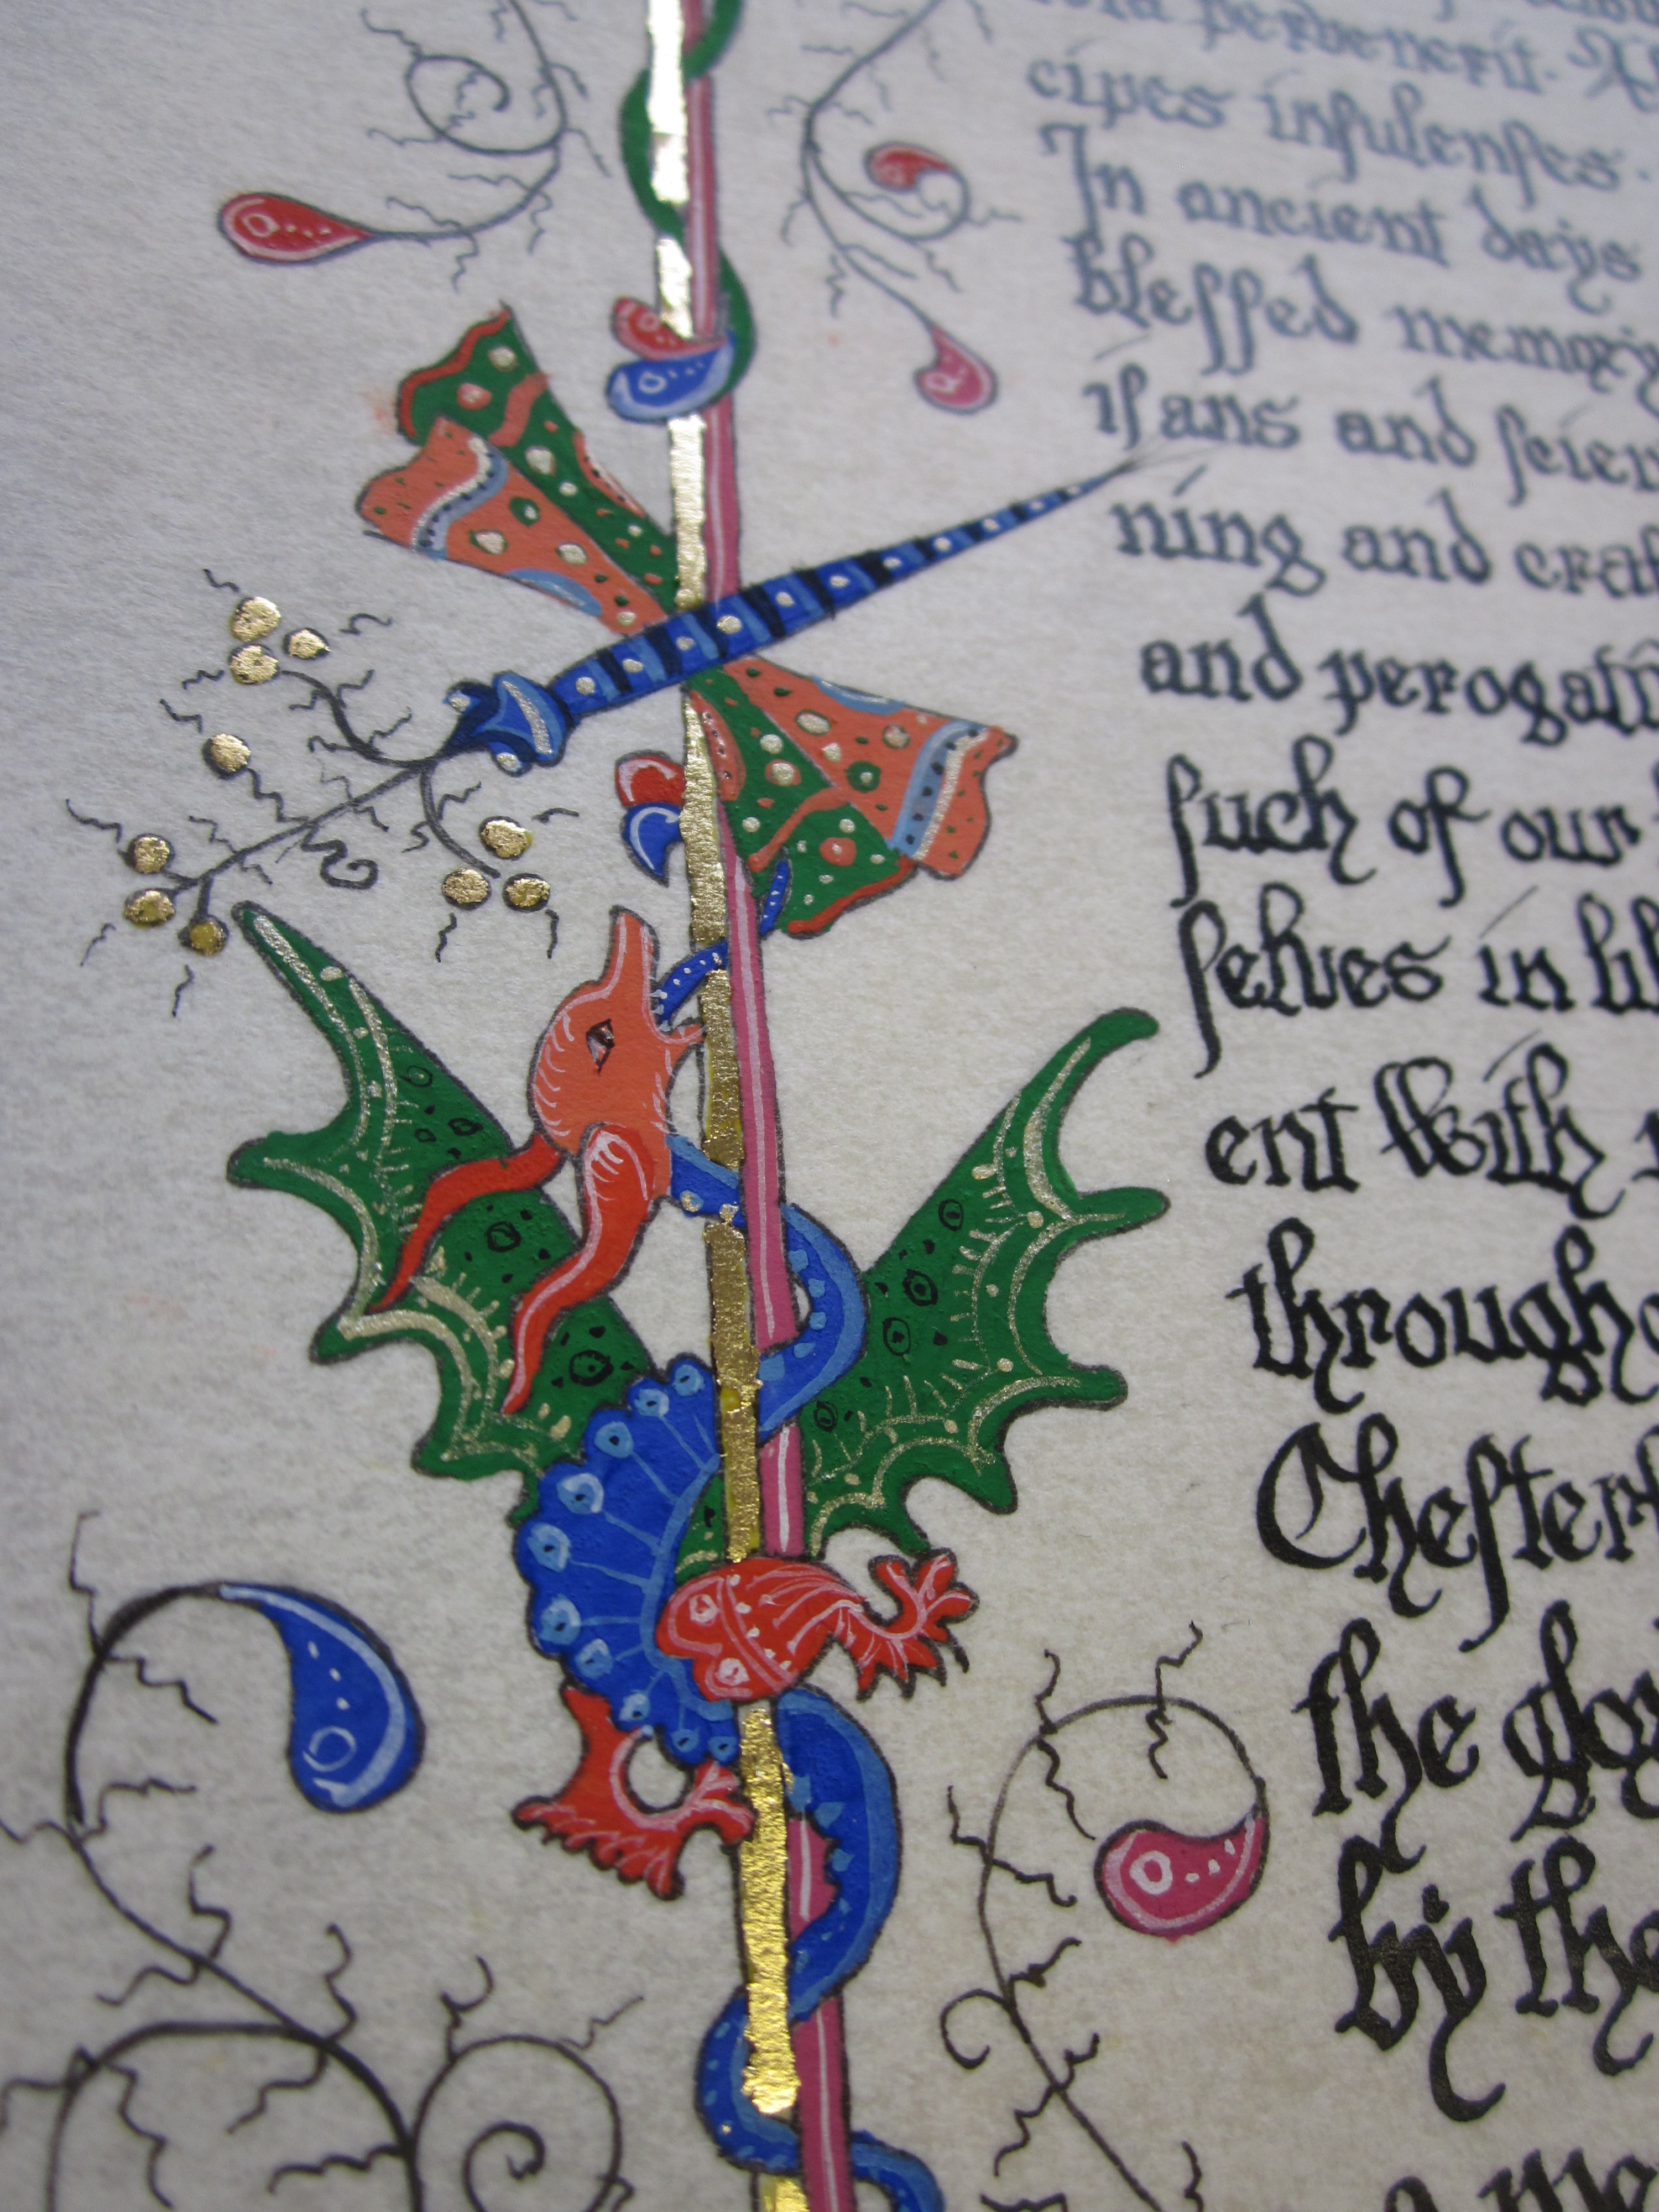 pervenerit.
cipes insulenses.
In ancient days
blessed memory
ning and craf
and perogati
such of our
selves in li
ent With
through
Chester
the glo
by the